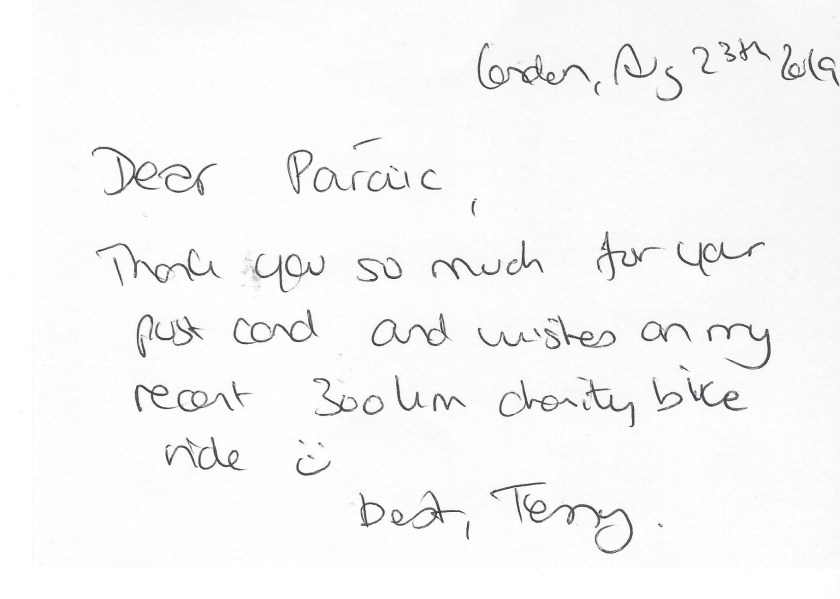 London, Aug 23th 2019
Dear Paraic,
Thank you so much for your
post card and wishes on my
recent 300km charity bike
ride :)
best, Terry.